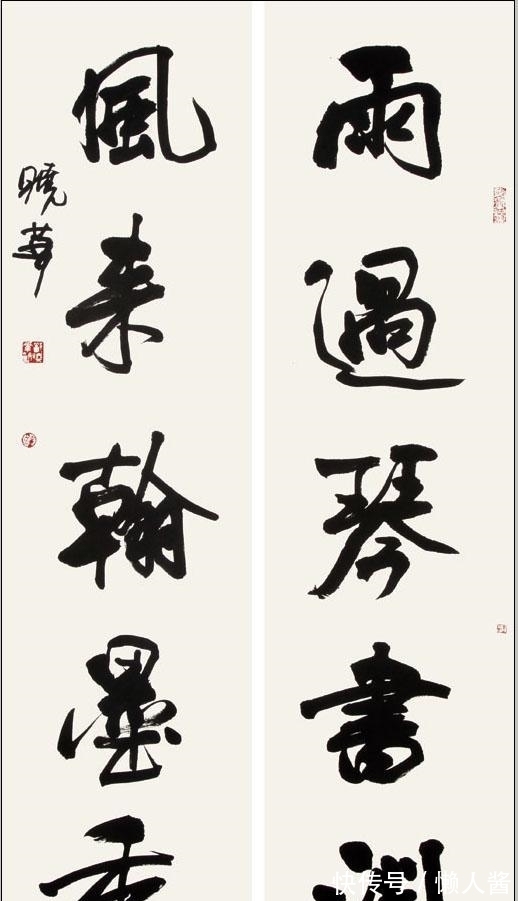 雨過琴書潤
風来翰墨香
曉
快传号/懒人酱